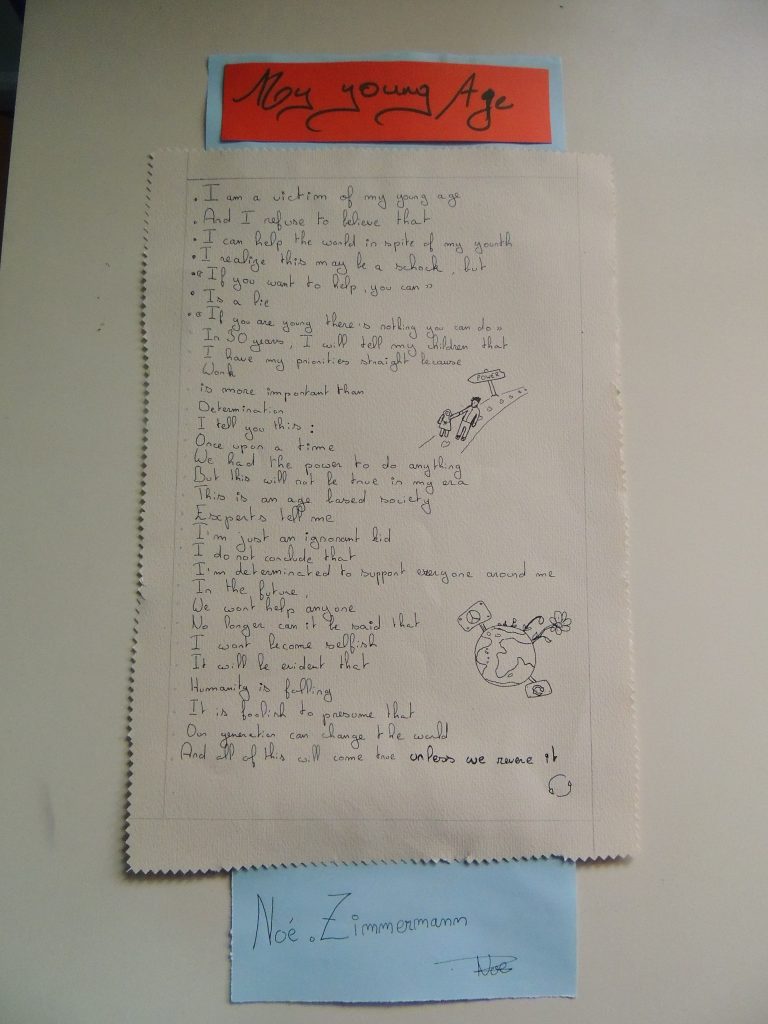 My young Age
• I am a victim of my young age
• And I refuse to believe that
• I can help the world in spite of my younth
• I realize this may be a schock, but
• « If you want to help, you can »
• Is a lie
• « If you are young there's nothing you can do »
In 30 years, I will tell my children that
I have my priorities straight because
Work
is more important than
Determination
POWER
I tell you this :
Once upon a time
We had the power to do anything
But this will not be true in my era
This is an age based society
Experts tell me
I'm just an ignorant kid
I do not conclude that
I'm determined to support everyone around me
In the future,
We wont help anyone
No longer can it be said that
I wont become selfish
It will be evident that
Humanity is falling
It is foolish to presume that
Our generation can change the world
And all of this will come true unless we revere it
Noé . Zimmermann
Noé